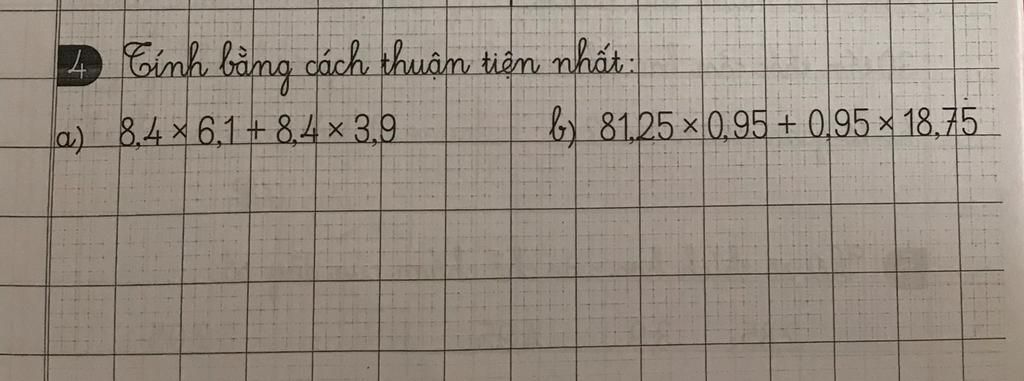 4 Tính bằng cách thuận tiện nhất:
a) 8,4 × 6,1 + 8,4 × 3,9 b) 81,25 × 0,95 + 0,95 × 18,75